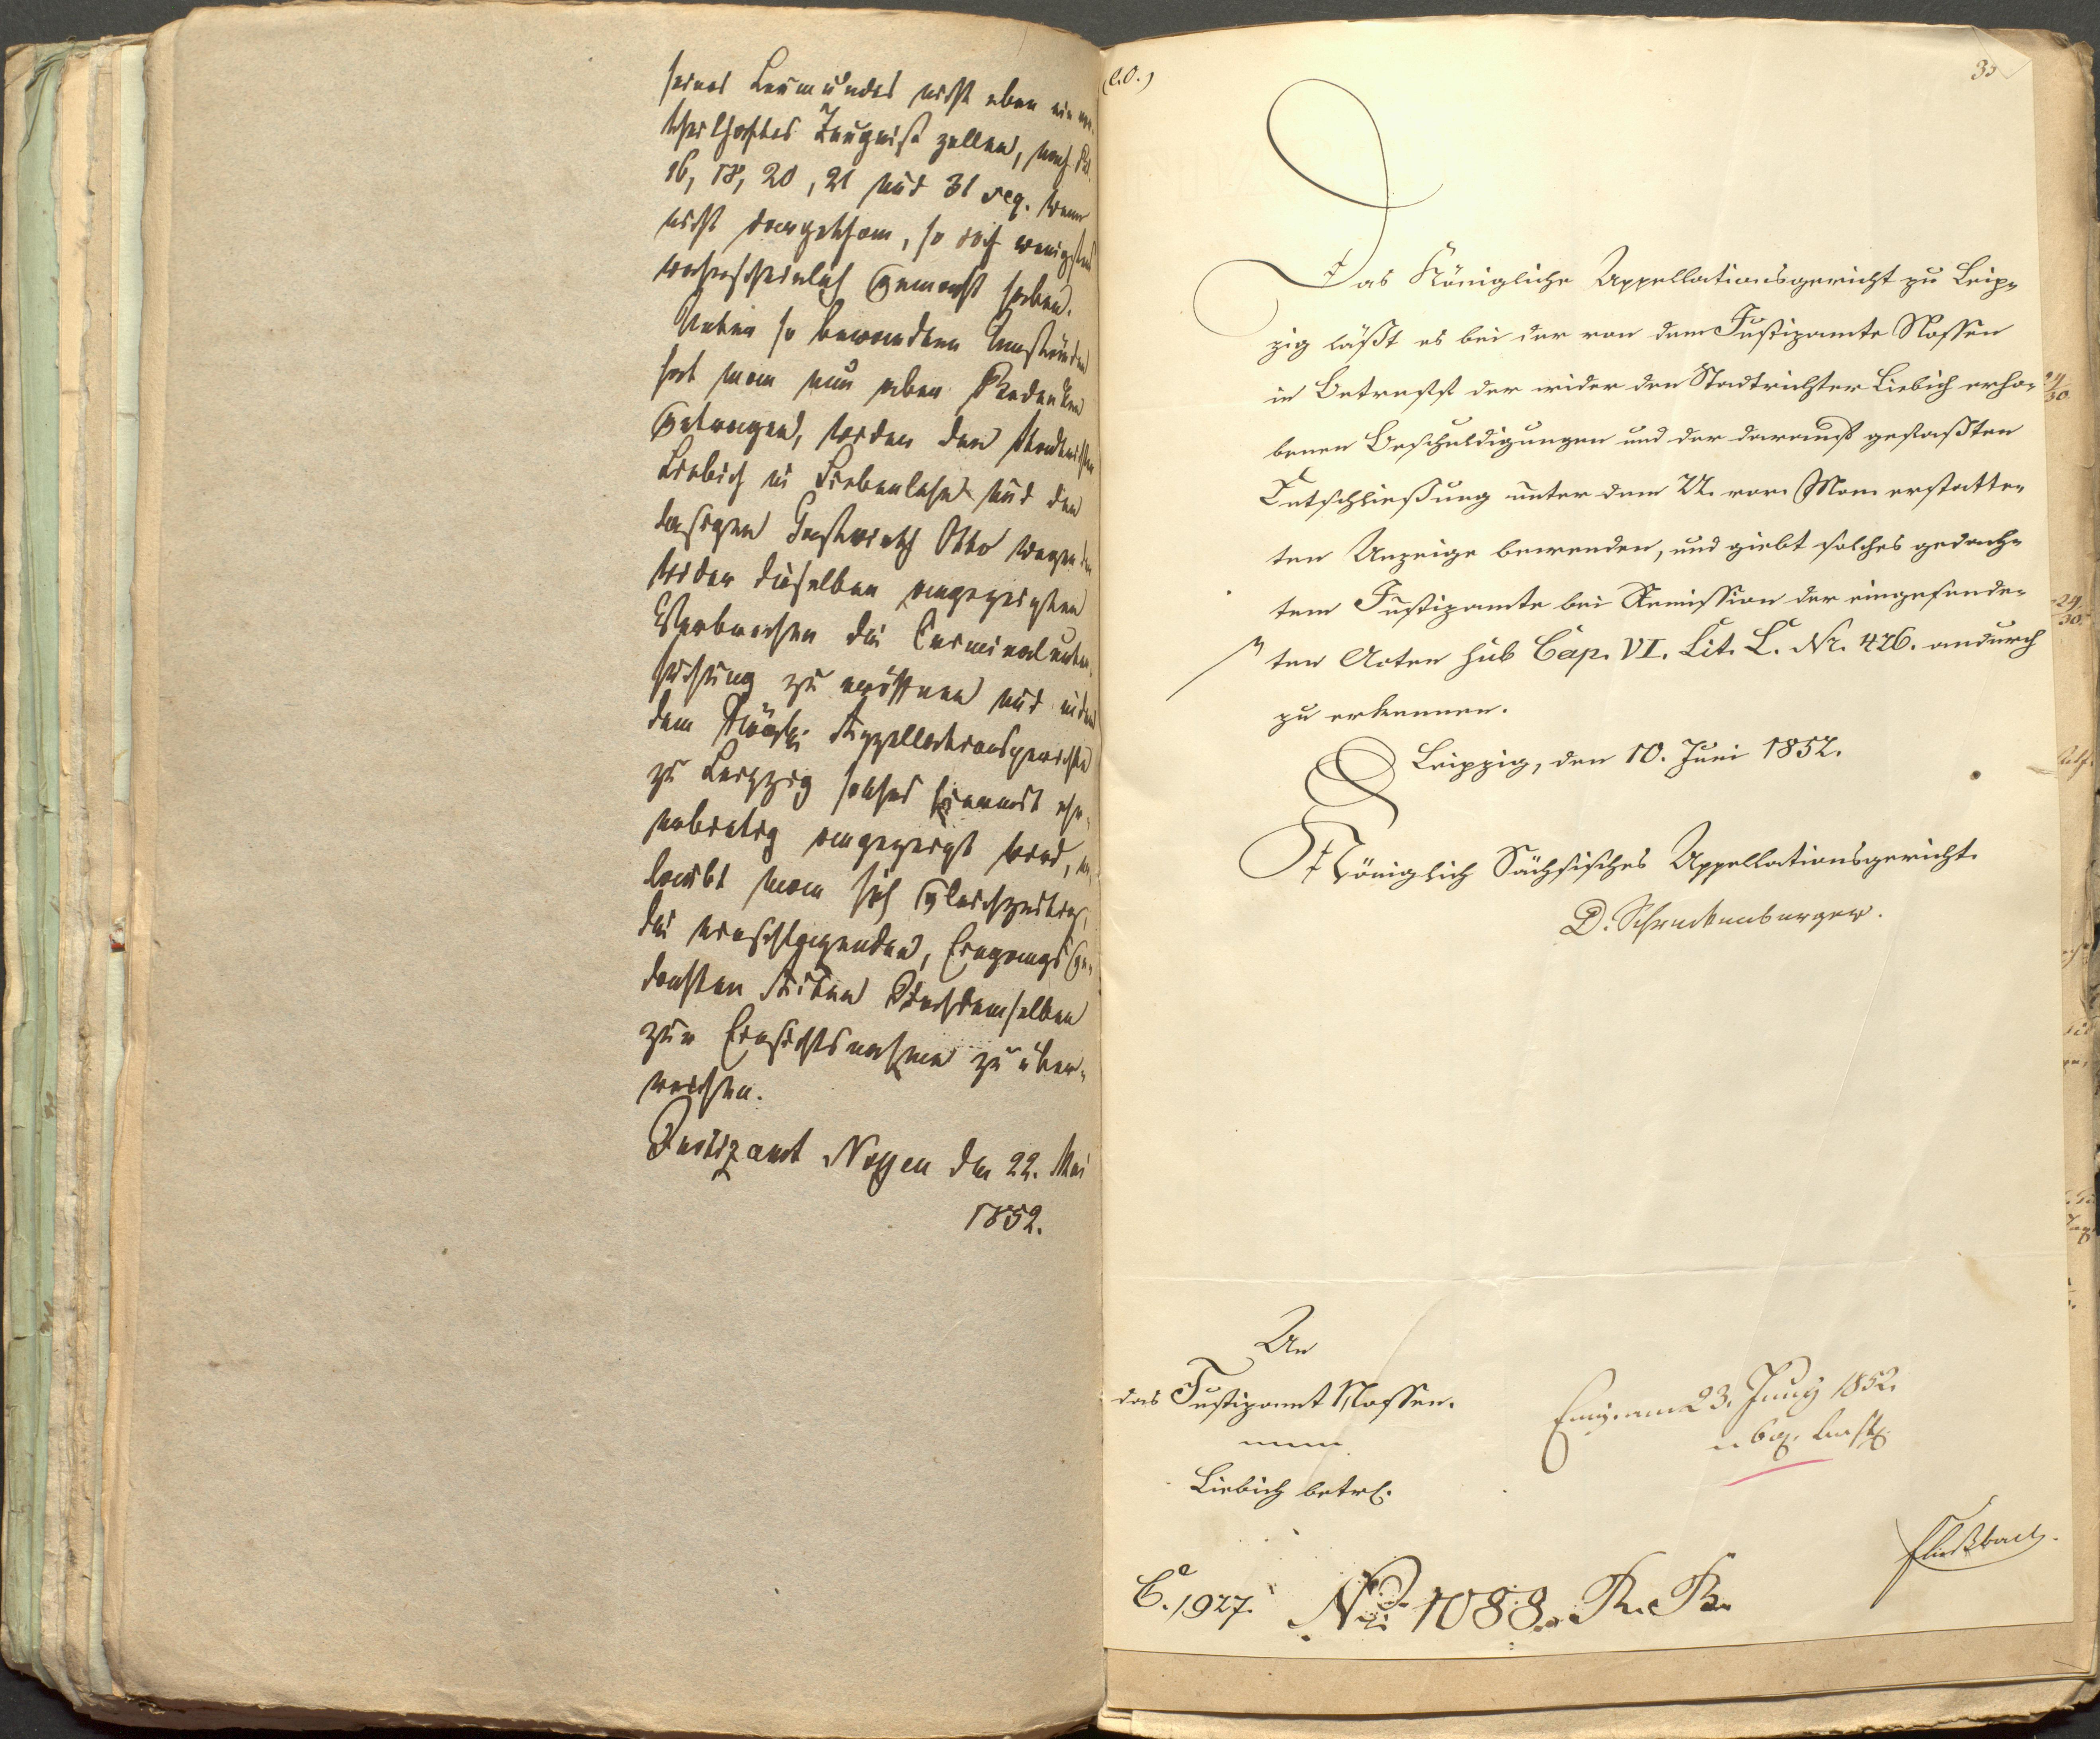 seines Leumundes nicht eben ein vor-
theilhaftes Zeugniß zollen, nach Bl.
16, 18, 20, 21 und 31 seq. wenn
nicht dargethan, so doch wenigstens
wahrscheinlich gemacht haben.
Unter so bewandten Umständen
hat man nun aber Bedenken
getragen, wider den Stadtrichter
Liebich in Siebenlehn und den
dasigen Gastwirth Otto wegen der
wider dieselben angezeigten
Verbrechen die Criminalunter-
suchung zu eröffnen und indem
dem Königl. Appellationsgerichte
zu Leipzig solches hiermit ehr-
erbietig angezeigt wird, er-
laubt man sich gleichzeitig,
die einschlagenden, Eingangs ge-
dachten Akten Hochdemselben
zur Einsichtsnahme zu über-
reichen.
Justizamt Nossen den 22. Mai
1852.
(l.O.)
35
Das Königliche Appellationsgericht zu Leip-
zig läßt es bei der von dem Justizamte Nossen
in Betreff der wider den Stadtrichter Liebich erho-
benen Beschuldigungen und der darauf gefaßten
Entschließung unter dem 22. vor. Mon. erstatte-
ten Anzeige bewenden, und giebt solches gedach-
tem Justizamte bei Remission der eingesende-
ten Acten sub Cap. VI. Lit. L. Nr. 426. andurch
zu erkennen.
Leipzig, den 10. Juni 1852.
Königlich Sächsisches Appellationsgericht.
D. Schreckenberger.
An
das Justizamt Nossen.
Liebich betr.
Eing. am 23. Juny 1852.
Fließbach.
C. 1927.
No. 1088. R. R.